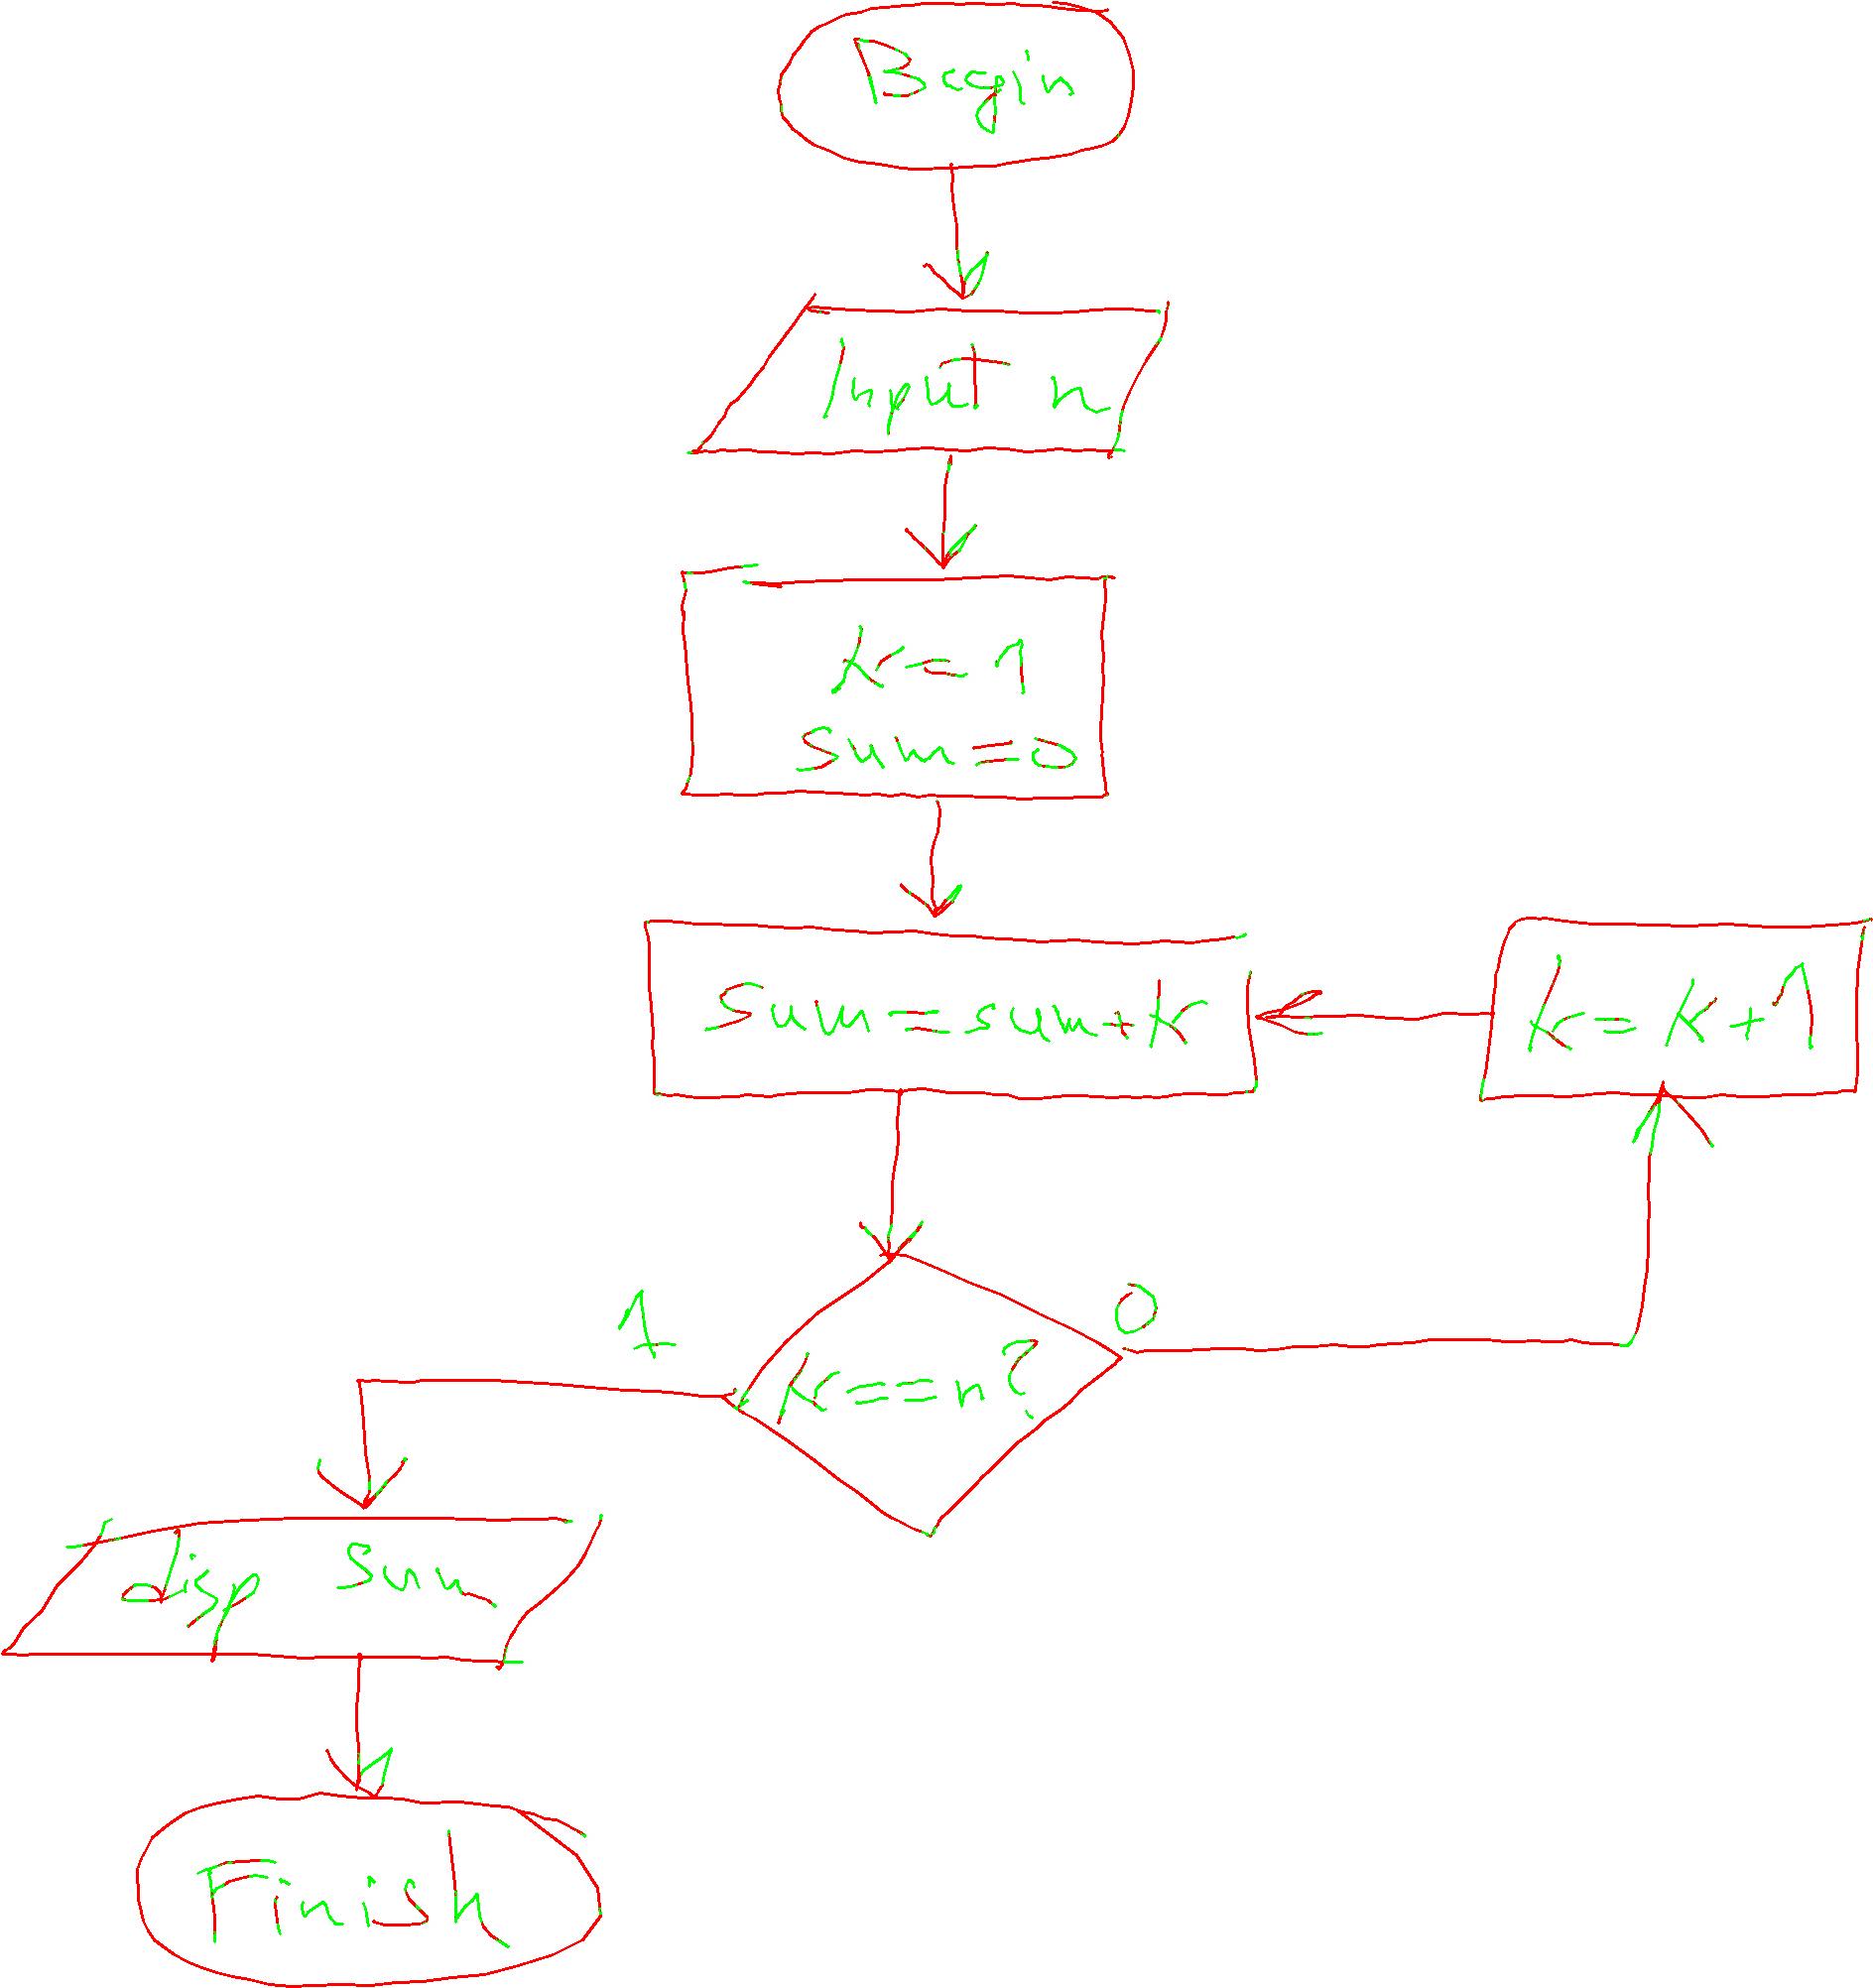 Begin
Input n
K=1
Sum=0
Sum=sum+k
K=K+1
1
0
K==n?
disp Sum
Finish